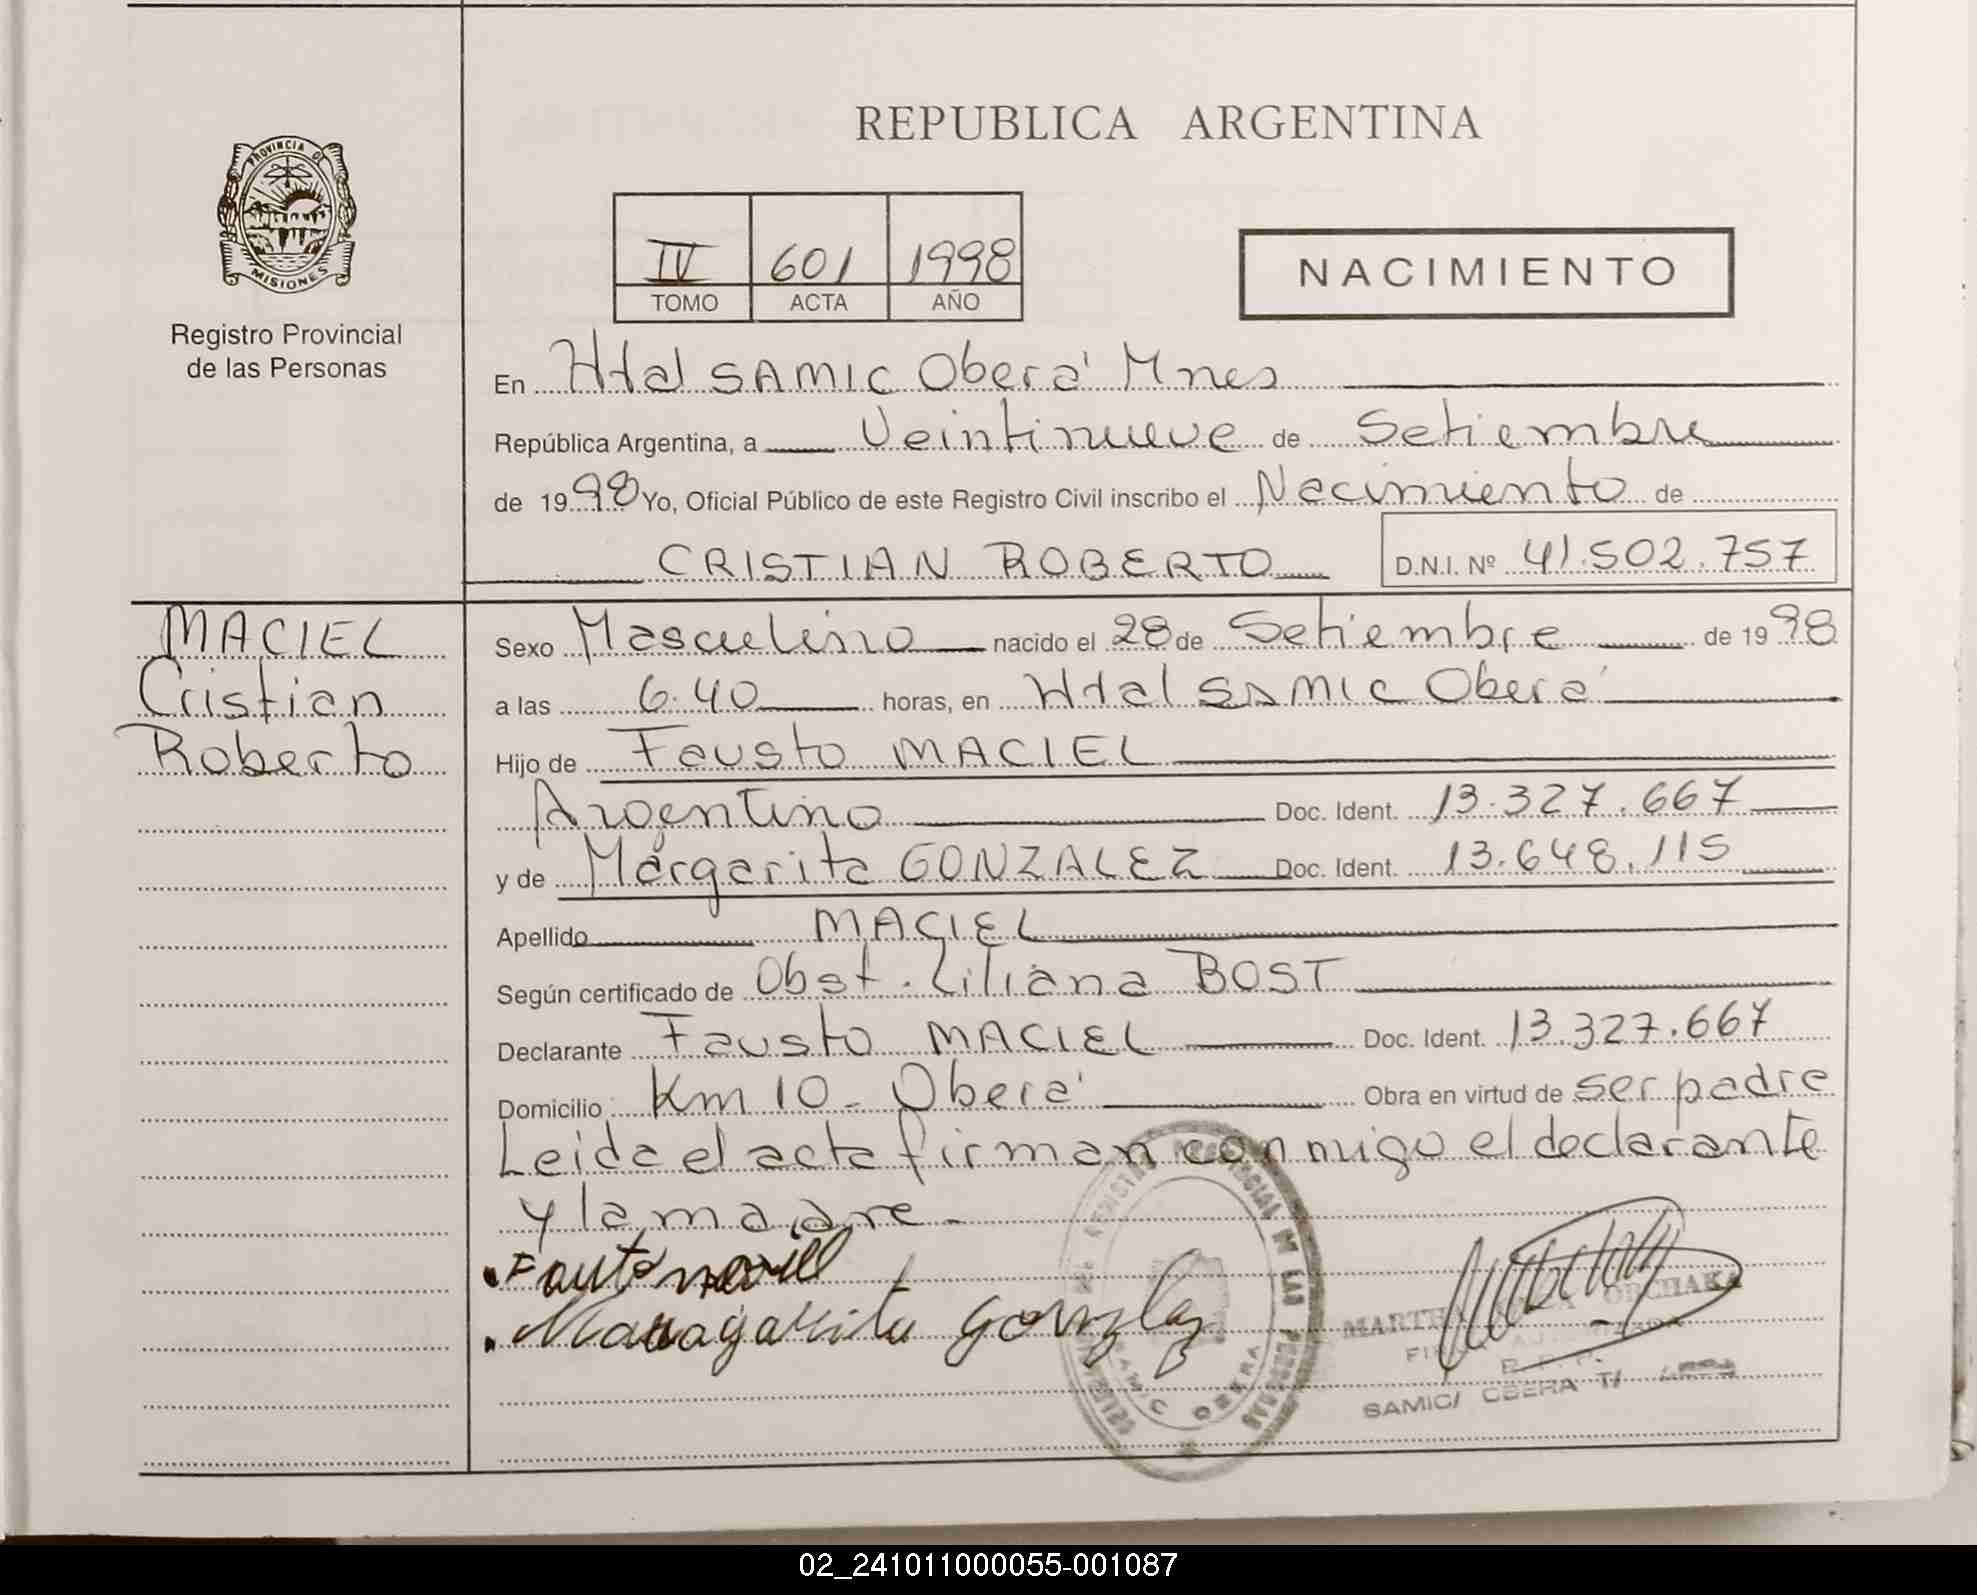 REPUBLICA ARGENTINA
PROVINCIA DE
MISIONES
Registro Provincial
de las Personas
IV 601 1998
TOMO ACTA AÑO
NACIMIENTO
En Htal SAMIC Oberá Mnes
República Argentina, a Veintinueve de Setiembre
de 1998 Yo, Oficial Público de este Registro Civil inscribo el Nacimiento de
CRISTIAN ROBERTO D.N.I. Nº 41.502.757
MACIEL
Cristian
Roberto
Sexo Masculino nacido el 28 de Setiembre de 1998
a las 6.40 horas, en Htal SAMIC Oberá
Hijo de Fausto MACIEL
Argentino Doc. Ident. 13.327.667
y de Margarita GONZALEZ Doc. Ident. 13.648.115
Apellido MACIEL
Según certificado de Obst. Liliana BOST
Declarante Fausto MACIEL Doc. Ident. 13.327.667
Domicilio Km 10 - Oberá Obra en virtud de ser padre
Leida el acta firman conmigo el declarante
y la madre -
SAMIC OBERA
MARTHA ORCHAKA
SAMIC/ OBERA T/
02_241011000055-001087